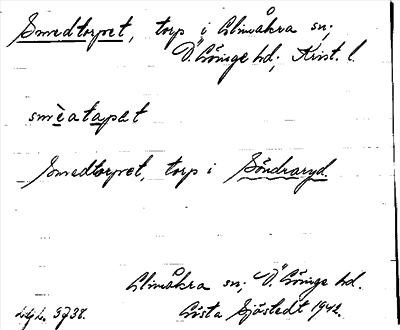 Smedtorpet, torp i Glimåkra sn;
Ö. Göinge hd, Krist. l.
smèatapat
Smedtorpet, torp i Söndraryd.
Glimåkra sn; Ö. Göinge hd.
Gösta Sjöstedt 1942.